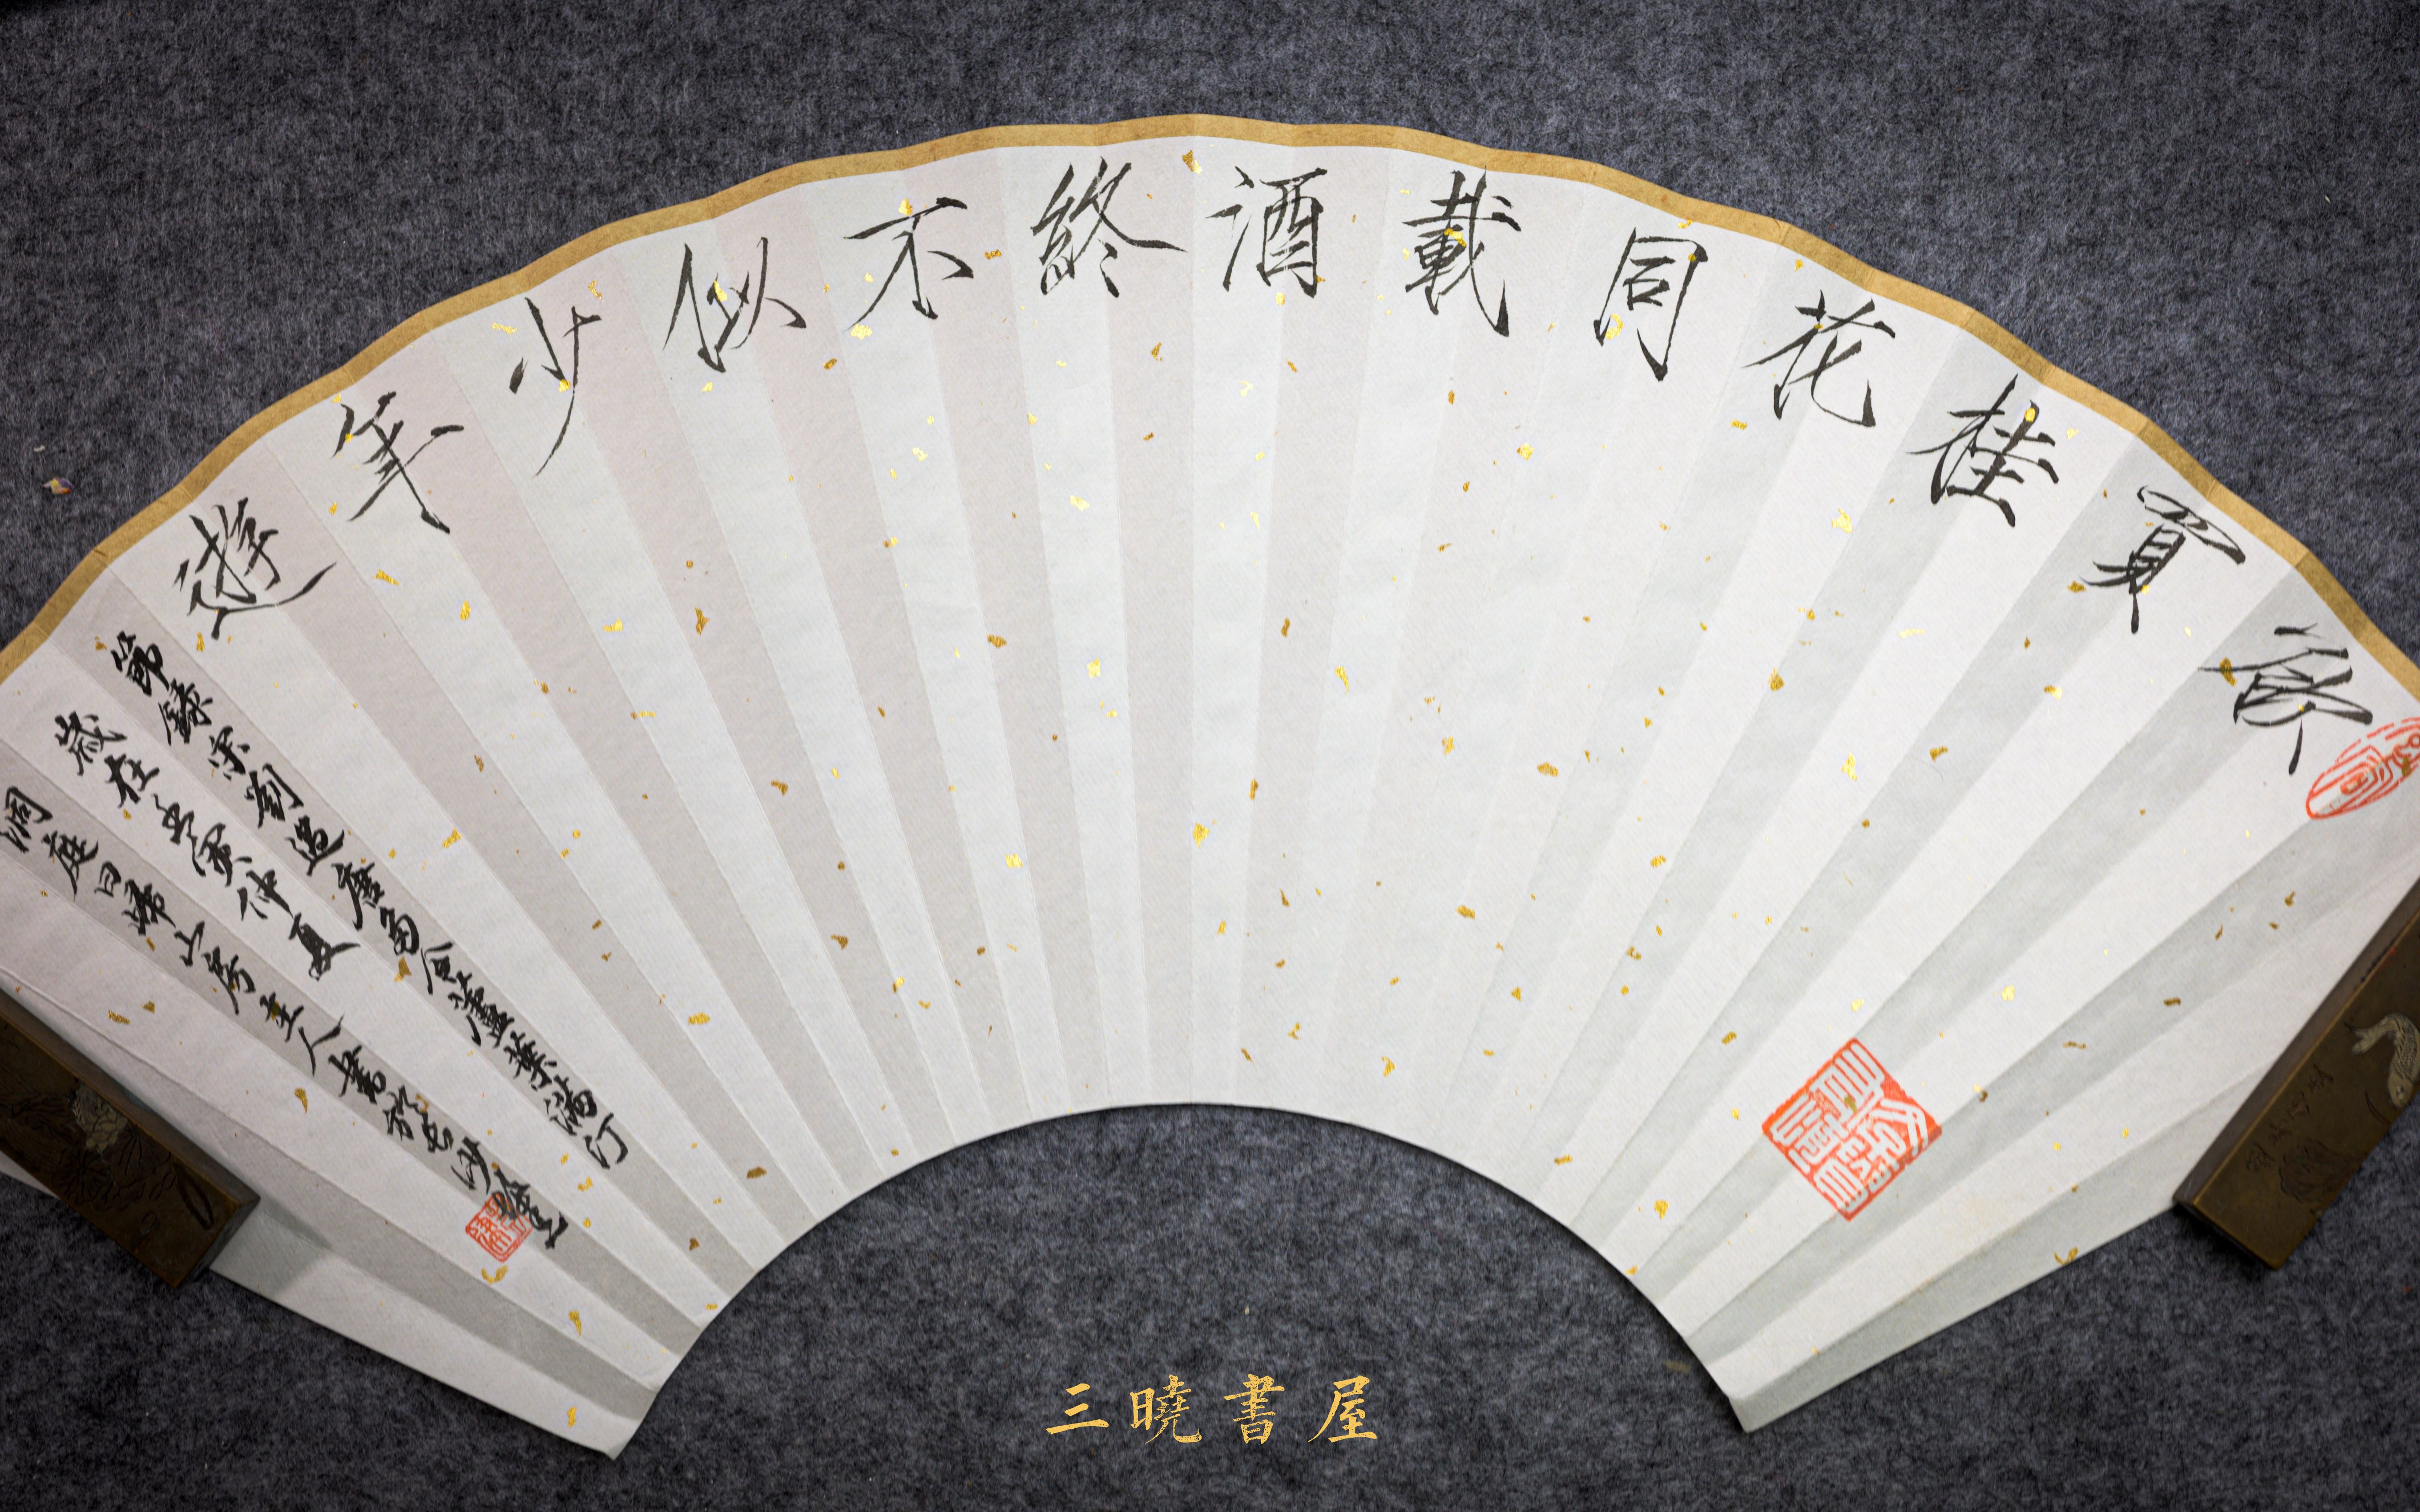 欲買桂花同載酒終不似少年遊
節錄宋劉過唐多令蘆葉滿汀
歲在壬寅仲夏
洞庭日歸山房主人書於長沙
三曉書屋